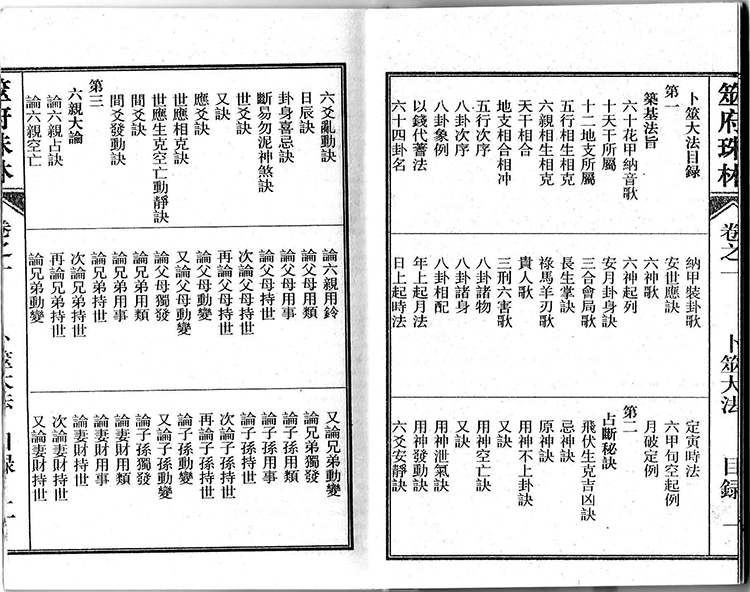 筮府珠林
卷之一
卜筮大法
目錄
一
卜筮大法目錄
第一
築基法旨
六十花甲納音歌
十天干所屬
十二地支所屬
五行相生相克
六親相生相克
天干相合
地支相合相冲
五行次序
八卦次序
八卦象例
以錢代蓍法
六十四卦名
納甲裝卦歌
安世應訣
六神歌
六神起列
安月卦身訣
三合會局歌
長生掌訣
祿馬羊刃歌
貴人歌
三刑六害歌
八卦諸物
八卦諸身
八卦相配
年上起月法
日上起時法
定寅時法
六甲旬空起例
月破定例
第二
占斷秘訣
飛伏生克吉凶訣
忌神訣
原神訣
用神不上卦訣
又訣
用神空亡訣
又訣
用神泄氣訣
用神發動訣
六爻安靜訣
六爻亂動訣
日辰訣
卦身喜忌訣
斷易勿泥神煞訣
世爻訣
又訣
應爻訣
世應相克訣
世應生克空亡動靜訣
間爻訣
間爻發動訣
第三
六親大論
論六親占訣
論六親空亡
論六親用鈴
論父母用類
論父母用事
論父母持世
次論父母持世
再論父母持世
論父母動變
又論父母動變
論父母獨發
論兄弟用類
論兄弟用事
論兄弟持世
次論兄弟持世
再論兄弟持世
論兄弟動變
又論兄弟動變
論兄弟獨發
論子孫用類
論子孫用事
論子孫持世
次論子孫持世
再論子孫持世
論子孫動變
又論子孫動變
論子孫獨發
論妻財用類
論妻財用事
論妻財持世
次論妻財持世
又論妻財持世
筮府珠林
卷之一
卜筮大法
目錄
二